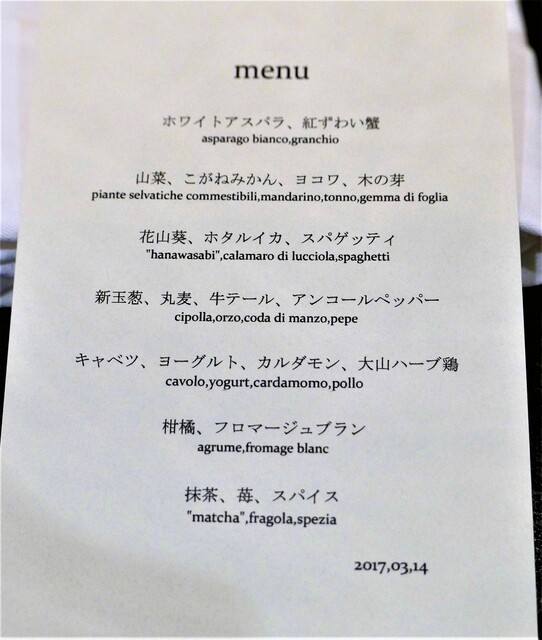 menu
ホワイトアスパラ、紅ずわい蟹
asparago bianco,granchio
山菜、こがねみかん、ヨコワ、木の芽
piante selvatiche commestibili,mandarino,tonno,gemma di foglia
花山葵、ホタルイカ、スパゲッティ
"hanawasabi",calamaro di lucciola,spaghetti
新玉葱、丸麦、牛テール、アンコールペッパー
cipolla,orzo,coda di manzo,pepe
キャベツ、ヨーグルト、カルダモン、大山ハーブ鶏
cavolo,yogurt,cardamomo,pollo
柑橘、フロマージュブラン
agrume,fromage blanc
抹茶、苺、スパイス
"matcha",fragola,spezia
2017,03,14